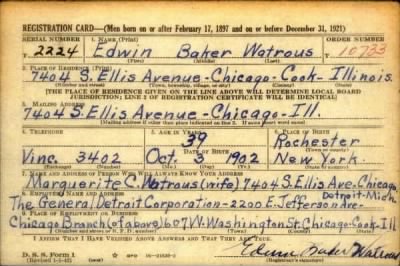 REGISTRATION CARD—(Men born on or after February 17, 1897 and on or before December 31, 1921)
SERIAL NUMBER 1. NAME (Print) ORDER NUMBER
T 2224 Edwin Baker Watrous T 10733
(First) (Middle) (Last)
2. PLACE OF RESIDENCE (Print)
7404 S. Ellis Avenue - Chicago - Cook - Illinois.
(Number and street) (Town, township, village, or city) (County) (State)
[THE PLACE OF RESIDENCE GIVEN ON THE LINE ABOVE WILL DETERMINE LOCAL BOARD
JURISDICTION; LINE 2 OF REGISTRATION CERTIFICATE WILL BE IDENTICAL]
3. MAILING ADDRESS
7404 S. Ellis Avenue - Chicago - Ill.
[Mailing address if other than place indicated on line 2. If same insert word same]
4. TELEPHONE 5. AGE IN YEARS 6. PLACE OF BIRTH
39 Rochester
DATE OF BIRTH (Town or county)
Vinc. 3402 Oct. 3 1902 New York.
(Exchange) (Number) (Mo.) (Day) (Yr.) (State or country)
7. NAME AND ADDRESS OF PERSON WHO WILL ALWAYS KNOW YOUR ADDRESS
Marguerite C. Watrous (wife) 7404 S. Ellis Ave - Chicago
8. EMPLOYER'S NAME AND ADDRESS Detroit - Mich
The General Detroit Corporation - 2200 E. Jefferson Ave -
9. PLACE OF EMPLOYMENT OR BUSINESS
Chicago Branch (of above) 607 W. Washington St Chicago - Cook - Ill
(Number and street or R. F. D. number) (Town) (County) (State)
I AFFIRM THAT I HAVE VERIFIED ABOVE ANSWERS AND THAT THEY ARE TRUE.
D. S. S. Form 1
(Revised 1-1-42) (over) Edwin Baker Watrous